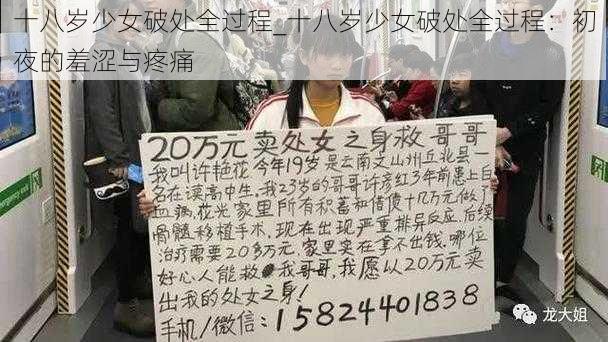 十八岁少女破处全过程_十八岁少女破处全过程：初
夜的羞涩与疼痛
20万元卖处女之身救哥哥
我叫许艳花今年19岁是云南文山州丘北县一
名在读高中生.我23岁的哥哥许彦红3年前患上白
血病,花光家里所有积蓄和借债十几万元做了
骨髓移植手术.现在出现严重排异反应.后续
治疗需要20多万元.家里实在拿不出钱.哪位
好心人能救我哥哥,我愿以20万元卖
出我的处女之身!
手机/微信:15824401838
龙大姐